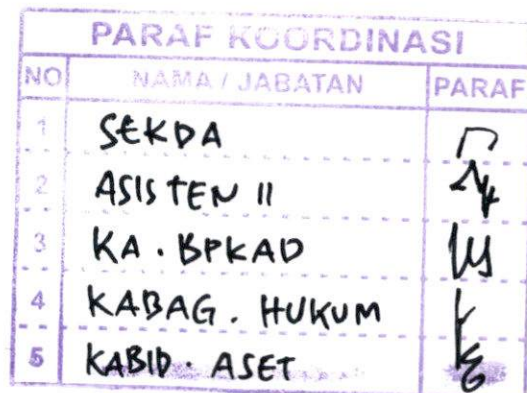 PARAF KOORDINASI
NO NAMA / JABATAN PARAF
1 SEKDA
2 ASISTEN II
3 KA. BPKAD
4 KABAG. HUKUM
5 KABID. ASET